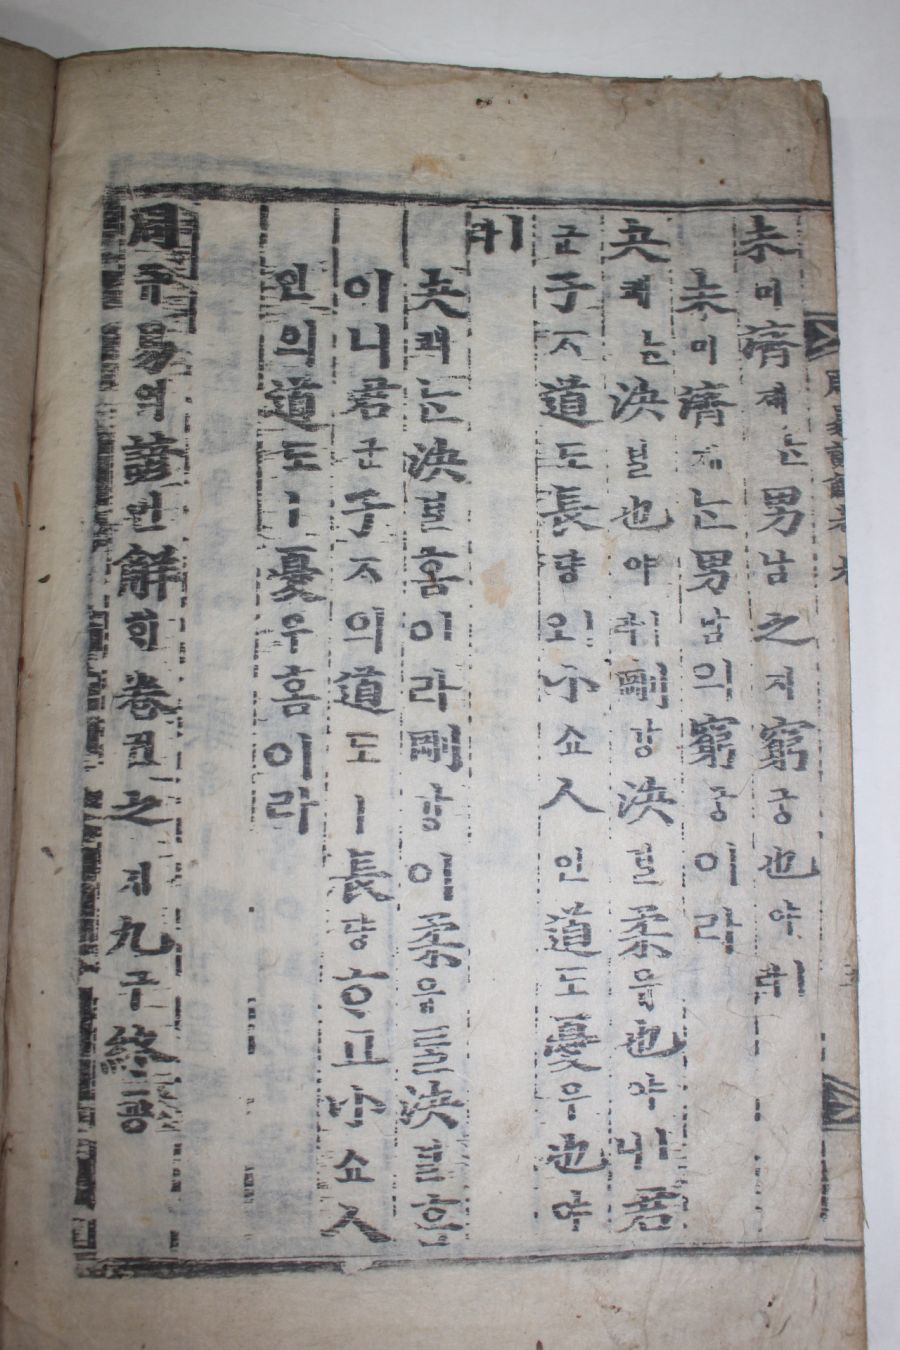 未미濟졔ᄂᆞᆫ男남之지窮궁也야ㅣ라
未미濟졔ᄂᆞᆫ男남의窮궁이라
夬쾌ᄂᆞᆫ決결也야ㅣ라剛강決결柔유也야ㅣ니君
군子ᄌᆞ道도長댱ㅣ오小쇼人인道도憂우也야
ㅣ라
夬쾌ᄂᆞᆫ決결홈이라剛강이柔유를決결ᄒᆞᆫ
이니君군子ᄌᆞ의道도ㅣ長댱ᄒᆞ고小쇼人
인의道도ㅣ憂우홈이라
周쥬易역諺언解ᄒᆡ卷권之지九구終죵
周易諺解卷九